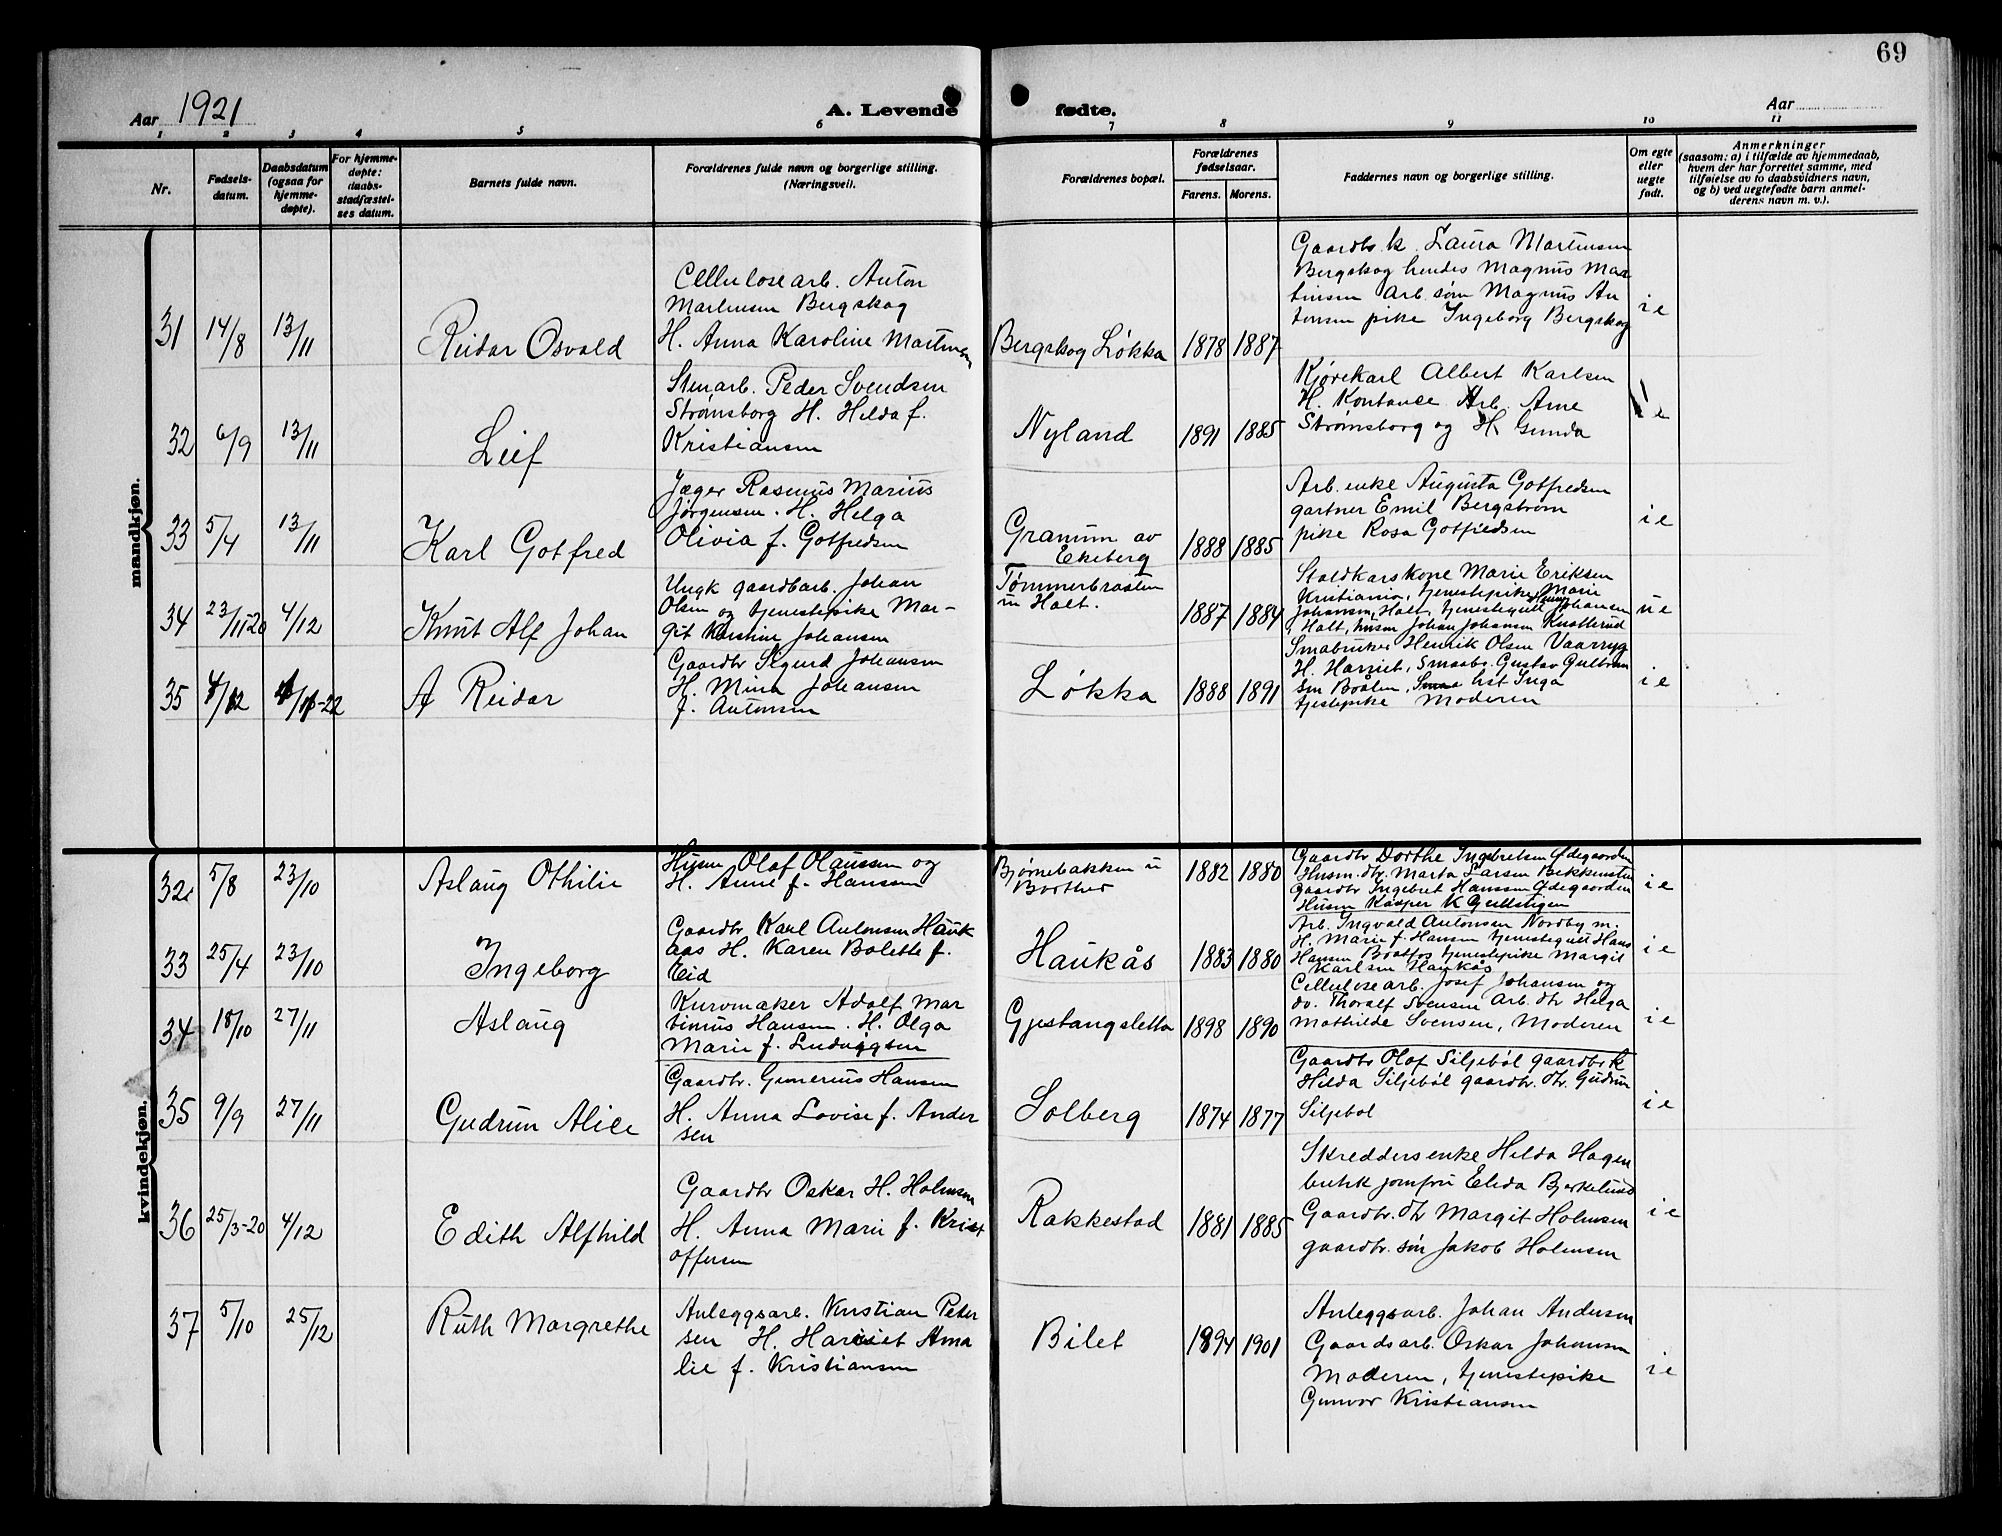 69
Aar 1921
A. Levende fødte.
Aar
1 2 3 4 5 6 7 8 9 10 11
Nr.
Fødsels-
datum.
Daabsdatum
(ogsaa for
hjemme-
døpte).
For hjemme-
døpte:
daabs-
stadfæstel-
ses datum.
Barnets fulde navn.
Forældrenes fulde navn og borgerlige stilling.
(Næringsvei).
Forældrenes bopæl.
Forældrenes
fødselsaar.
Farens. Morens.
Faddernes navn og borgerlige stilling.
Om egte
eller
uegte
født.
Anmerkninger
(saasom: a) i tilfælde av hjemmedaab,
hvem der har forrettet samme, med
tilføielse av to daabsvidners navn,
og b) ved uegtefødte barn anmel-
derens navn m. v.).
mandkjøn.
31 14/8 13/11
Reidar Osvald
Cellulosearb. Anton
Martinsen Bergskog
H. Anna Karoline Martinsen
Bergskog Løkka 1878 1887
Gaardbr. k. Laura Martinsen
Bergskog hendes Magnus Mar
tinsen Arb. søn Magnus An
tonsen pike Ingeborg Bergskog
i e
32 6/9 13/11
Leif
Stenarb. Peder Svendsen
Strømsborg H. Hilda f.
Kristiansen
Nyland 1891 1885
Kjørekarl Albert Karlsen
H. Kontance Arb. Arne
Strømsborg og H. Gunda
i e
33 5/4 13/11
Karl Gotfred
Jæger Rasmus Marius
Jørgensen. H. Helga
Olivia f. Gotfredsen
Granum av
Ekeberg
1888 1885
Arb. enke Augusta Gotfredsen
gartner Emil Bergstrøm
pike Rosa Gotfredsen
i e
34 23/11-20 4/12
Knut Alf Johan
Ungk gaardbarb. Johan
Olsen og tjenestepike Mar-
git Kristine Johansen
Tømmerbraaten
u Holt.
1887 1884
Staldkarskone Marie Eriksen
Kristiania, tjenestepike Marie
Johansen, Holt, tjenestegutt Johansen
Holt, husm Johan Johansen Knatterud
u e
35
A Reidar
Gaardbr Sigurd Johansen
H. Mina Johansen
f. Antonsen
Løkka 1888 1891
Smabruker Henrik Olsen Vaarryg
H. Harriet, Smaabr. Gustav Gulbran
sen Braaten, hst Inga
tjestepike Moderen
i e
kvindekjøn.
32 5/8 23/10
Aslaug Othilie
Husm Olaf Olaussen og
H. Anne f. Hansen
Bjørnebakken u
Borther
1882 1880
Gaardbr Dorthe Ingebretsen Ødegaarden
Husm. dtr. Marta Larsen Bekkensten
Gaardbr Ingebret Hanssen Ødegaarden
Husm Kasper K Gullstigen
i e
33 25/4 23/10
Ingeborg
Gaardbr Karl Antonsen Hauk
aas H. Karen Bolette f.
Eid
Haukås 1883 1880
Arb. Ingvald Antonsen Nordby m
H. Marie f. Hansen tjenestegutt Hans
Hansen Boatfos tjenestepike Margit
Karlsen Haukås
i e
34 18/10 27/11
Aslaug
Kurvmaker Adolf Mar
tinius Hansen. H. Olga
Marie f. Ludvigsen
Gjestangsletta 1898 1890
Cellulosearb. Josef Johansen og
do. Thoralf Svensen Arb. dtr Helga
Mathilde Svensen, Moderen
i e
35 9/9 27/11
Gudrun Alice
Gaardbr. Gunerius Hansen
H. Anna Lovise f. Ander
sen
Solberg 1874 1877
Gaardbr Olaf Siljebøl gaardbr k
Hilda Siljebøl gaardbr. dtr. Gudrun
Siljebøl
i e
36 25/3-20 4/12
Edith Alfhild
Gaardbr Oskar H. Holmsen
H. Anna Marie f. Krist
offersen
Rakkestad 1881 1885
Skreddersenke Hilda Hagen
butik jomfru Elida Bjerkelund
Gaardbr. dtr Margit Holmsen
gaardbr. søn Jakob Holmsen
i e
37 5/10 25/12
Ruth Margrethe
Anleggsarb. Kristian Peter
sen H. Harriet Ama
lie f. Kristiansen
Bilet 1894 1901
Anleggsarb. Johan Andersen
Gaardsarb. Oskar Johansen
Moderen, tjenestepike
Gunvor Kristiansen
i e